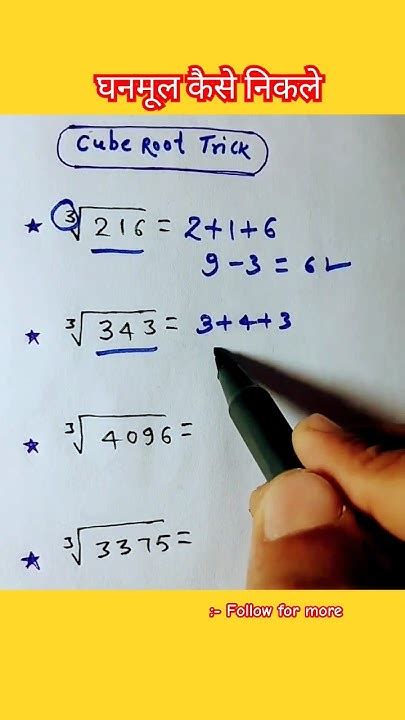 घनमूल कैसे निकले
Cube Root Trick
★ ∛216 = 2+1+6
9 - 3 = 6 ✓
★ ∛343 = 3+4+3
★ ∛4096 =
★ ∛3375 =
:- Follow for more